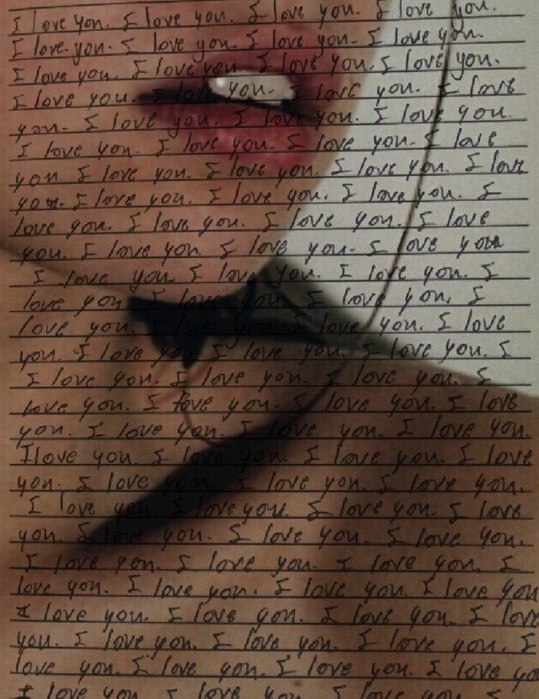 I love you. I love you. I love you. I love you.
I love you. I love you. I love you. I love you.
I love you. I love you. I love you. I love you.
I love you. I love you. I love you. I love
you. I love you. I love you. I love you.
I love you. I love you. I love you. I love
you I love you. I love you. I love you. I love
you. I love you. I love you. I love you. I
love you. I love you. I love you. I love
you. I love you. I love you. I love you
I love you. I love you. I love you. I
love you. I love you. I love you. I
love you. I love you. I love you. I love
you. I love you. I love you. I love you. I
I love you. I love you. I love you. I
love you. I love you. I love you. I love
you. I love you. I love you. I love you.
I love you I love you. I love you. I love
you. I love you. I love you. I love you.
I love you I love you. I love you. I love
you. I love you. I love you. I love you.
I love you. I love you. I love you. I
love you. I love you. I love you. I love you
I love you. I love you. I love you. I love
you. I love you. I love you. I love you. I
love you. I love you. I love you. I love you
I love you. I love you. I love you. I love you.